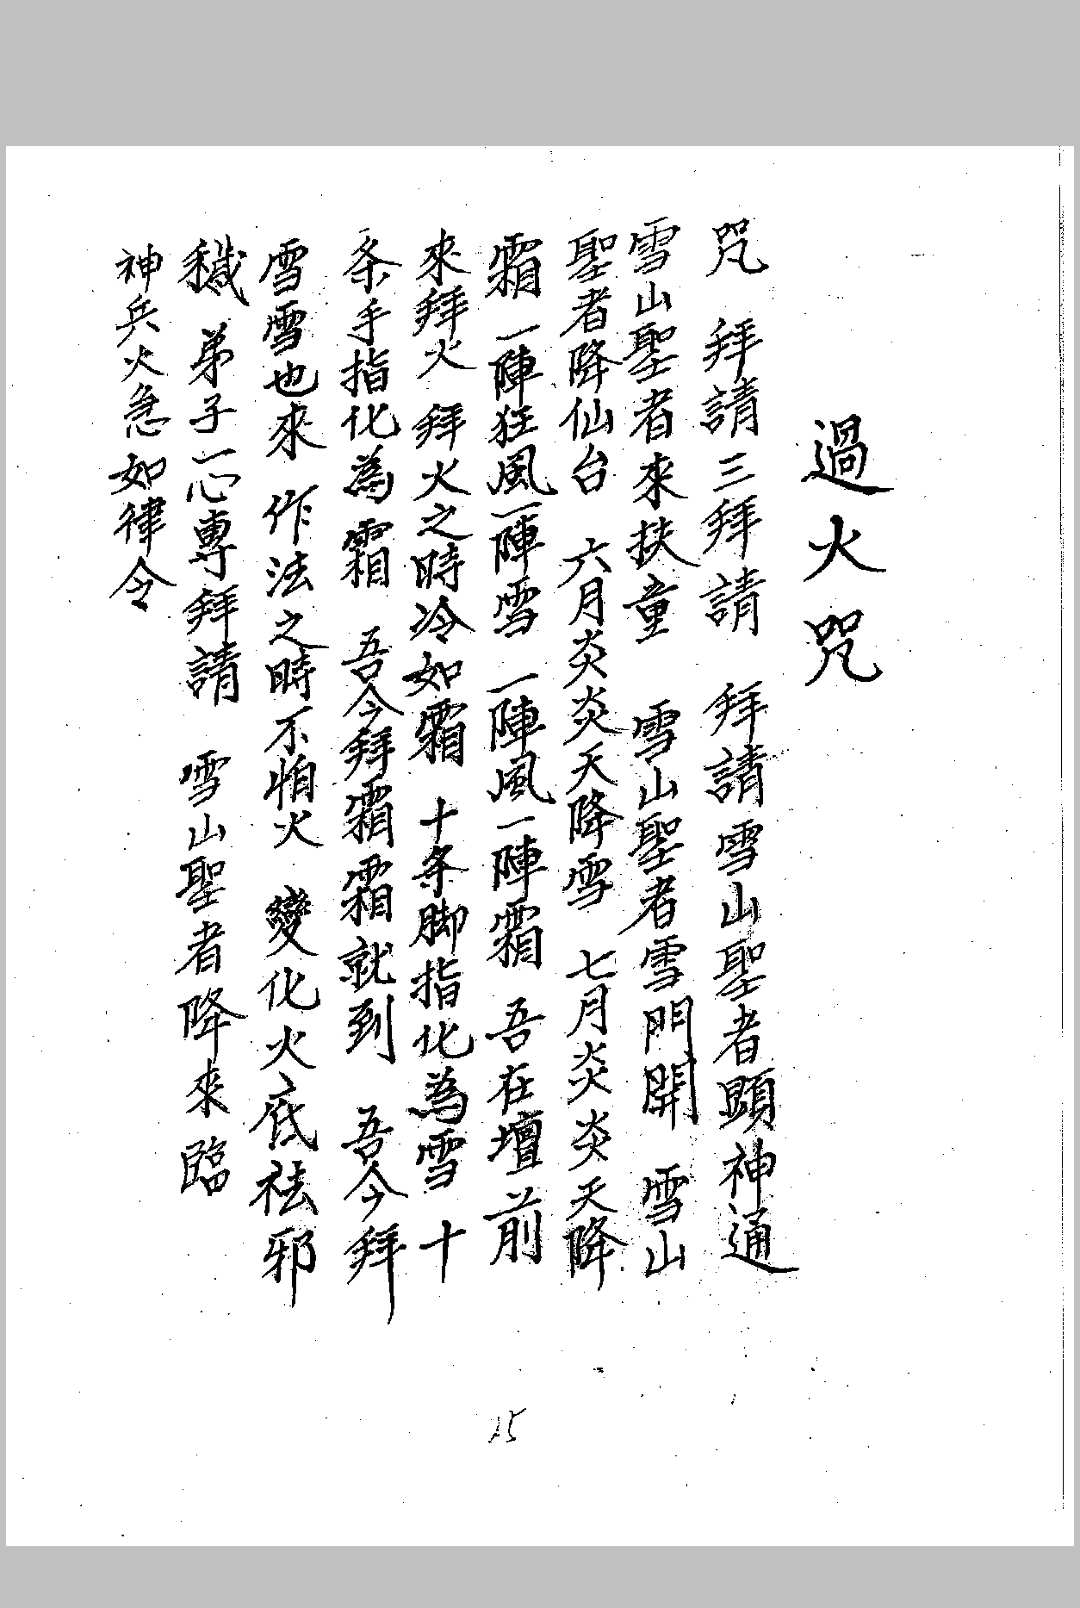 過火咒
咒 拜請三拜請 拜請雪山聖者顕神通
雪山聖者來扶童 雪山聖者雪門開 雪山
聖者降仙台 六月炎炎天降雪 七月炎炎天降
霜 一陣狂風一陣雪 一陣風一陣霜 吾在壇前
來拜火 拜火之時冷如霜 十条脚指化為雪 十
条手指化為霜 吾今拜霜霜就到 吾今拜
雪雪也來 作法之時不怕火 變化火底祛邪
穢 弟子一心專拜請 雪山聖者降來臨
神兵火急如律令
15